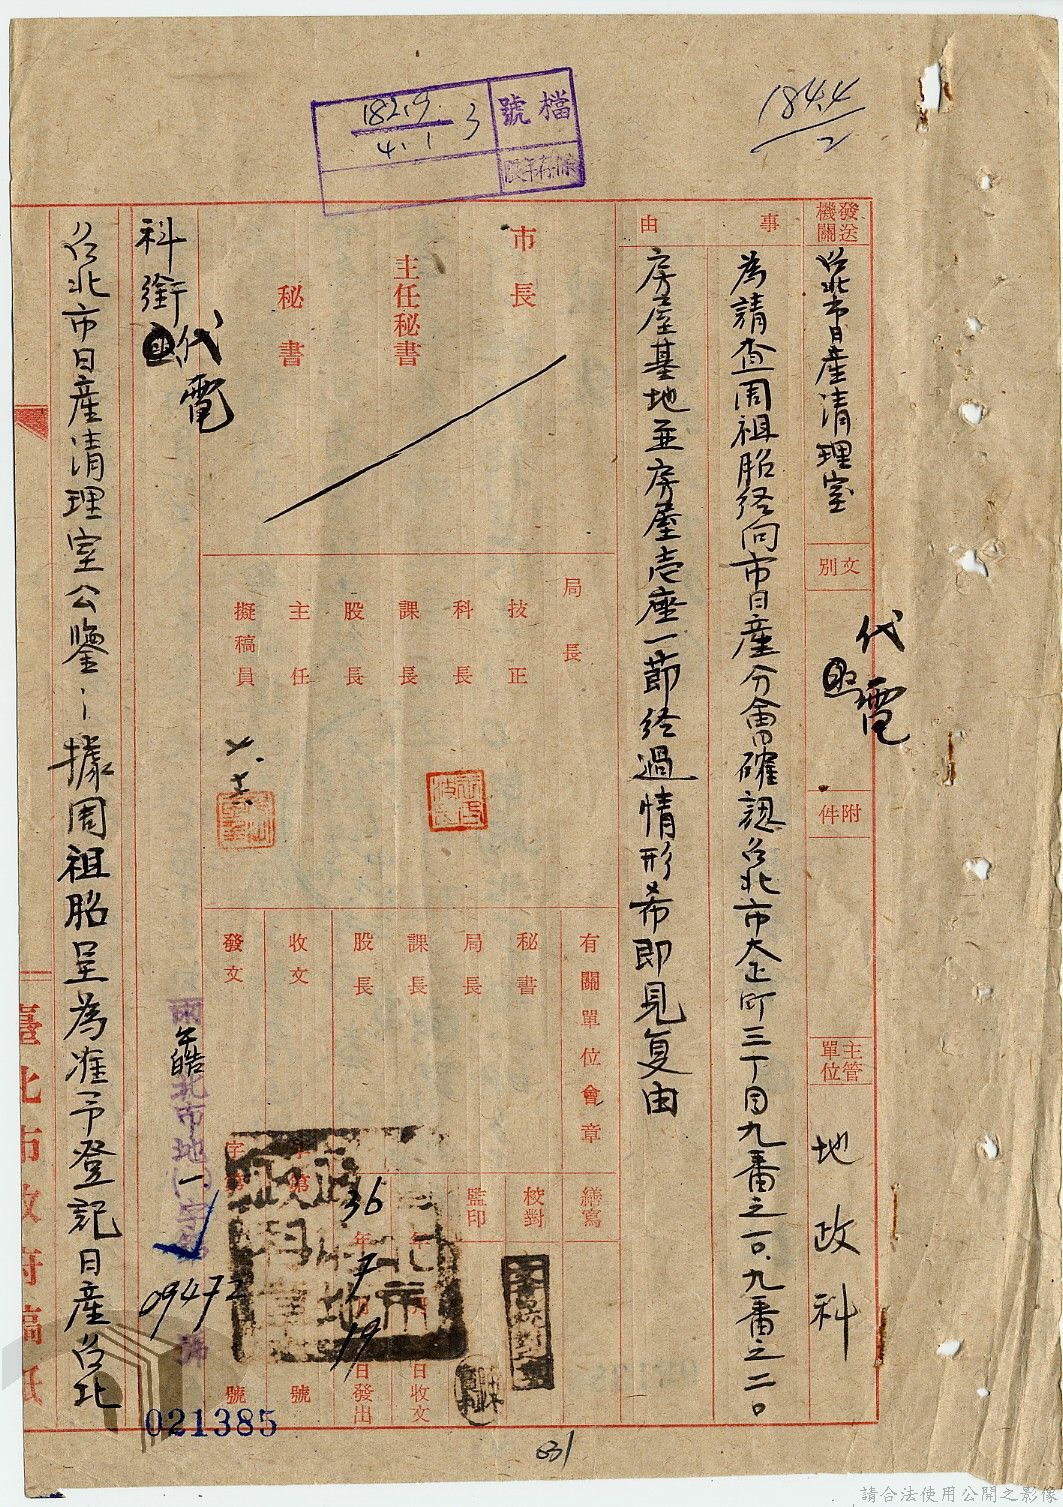 184.4
2
檔號
182.9
4.1
3
保存年限
發送機關
台北市日產清理室
文別
代電
附件
主管單位
地政科
事由
為請查周祖胎經向市日產分會確認台北市大正町三丁目九番之一〇、九番之二〇
房屋基地並房屋壱座一節經過情形希即見复由
市長
主任秘書
秘書
局長
技正
科長
課長
股長
主任
擬稿員
有關單位會章
秘書
局長
課長
股長
收文
發文
繕寫
校對
監印
日收文
36年7月19日發出
字第號
字第09472號
北市地(一)字第號
科銜代電
台北市日產清理室公鑒：據周祖胎呈為准予登記日產台北
臺北市政府稿紙
021385
031
請合法使用公開之影像